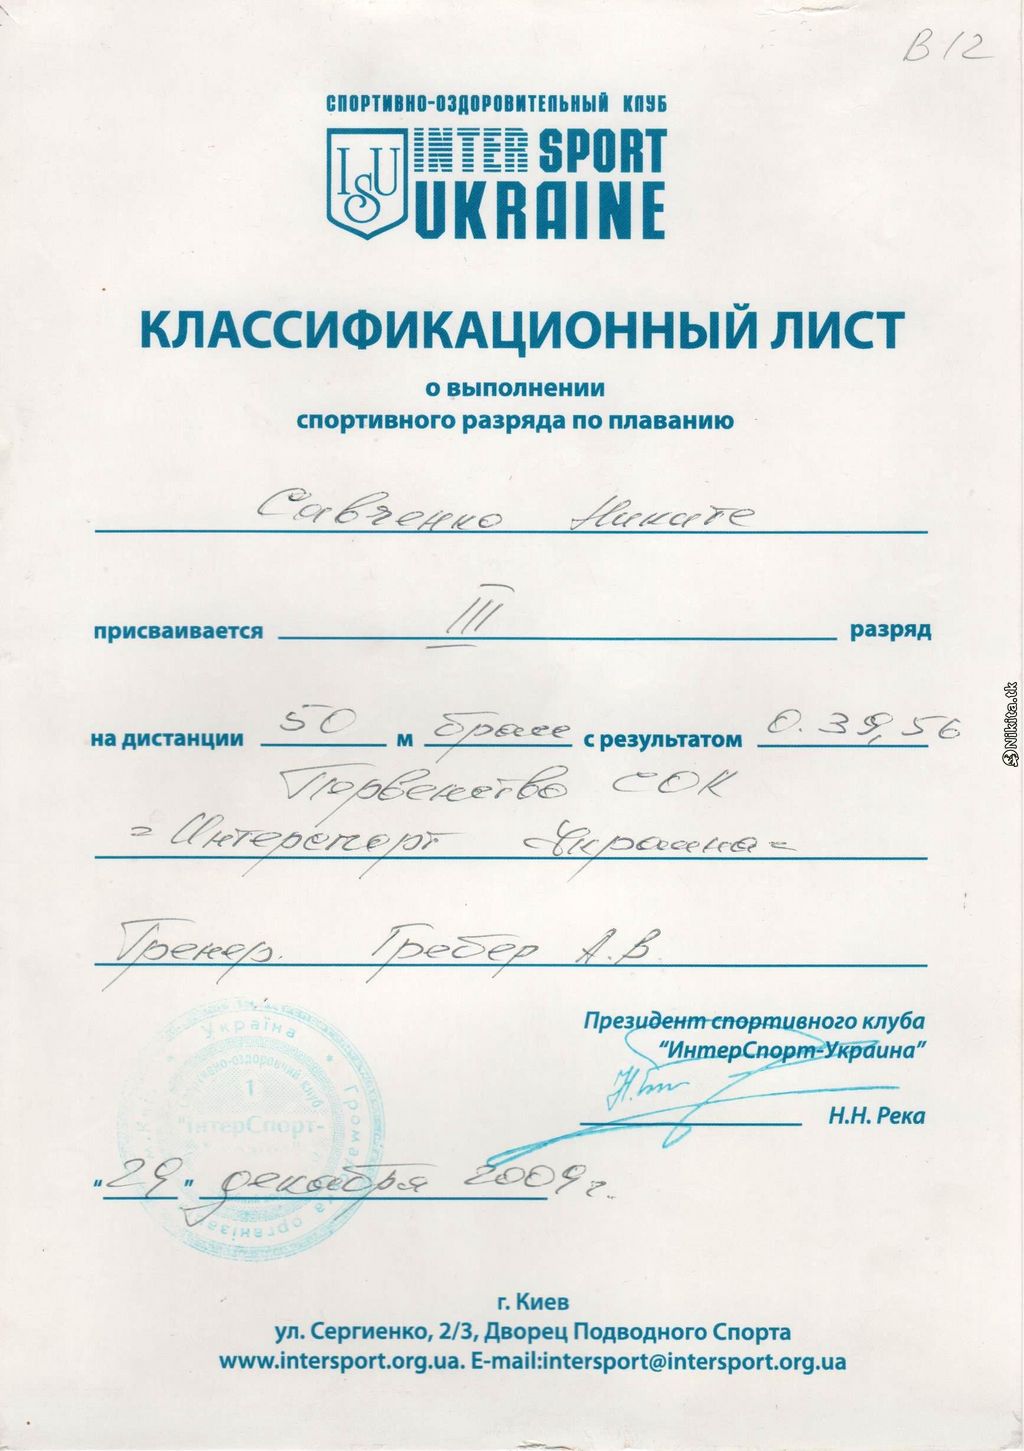 В12
СПОРТИВНО-ОЗДОРОВИТЕЛЬНЫЙ КЛУБ
ISU INTER SPORT
UKRAINE
КЛАССИФИКАЦИОННЫЙ ЛИСТ
о выполнении
спортивного разряда по плаванию
Савченко Никите
присваивается III разряд
на дистанции 50 м брасс с результатом 0.39,56
Первенство СОК
"Интерспорт Украина"
Тренер. Гребер А.В.
Президент спортивного клуба
"ИнтерСпорт-Украина"
Н.Н. Река
Україна
оздоровчий клуб
1
"ІнтерСпорт-
"29" декабря 2009 г.
г. Киев
ул. Сергиенко, 2/3, Дворец Подводного Спорта
www.intersport.org.ua. E-mail:intersport@intersport.org.ua
Nikita.tk